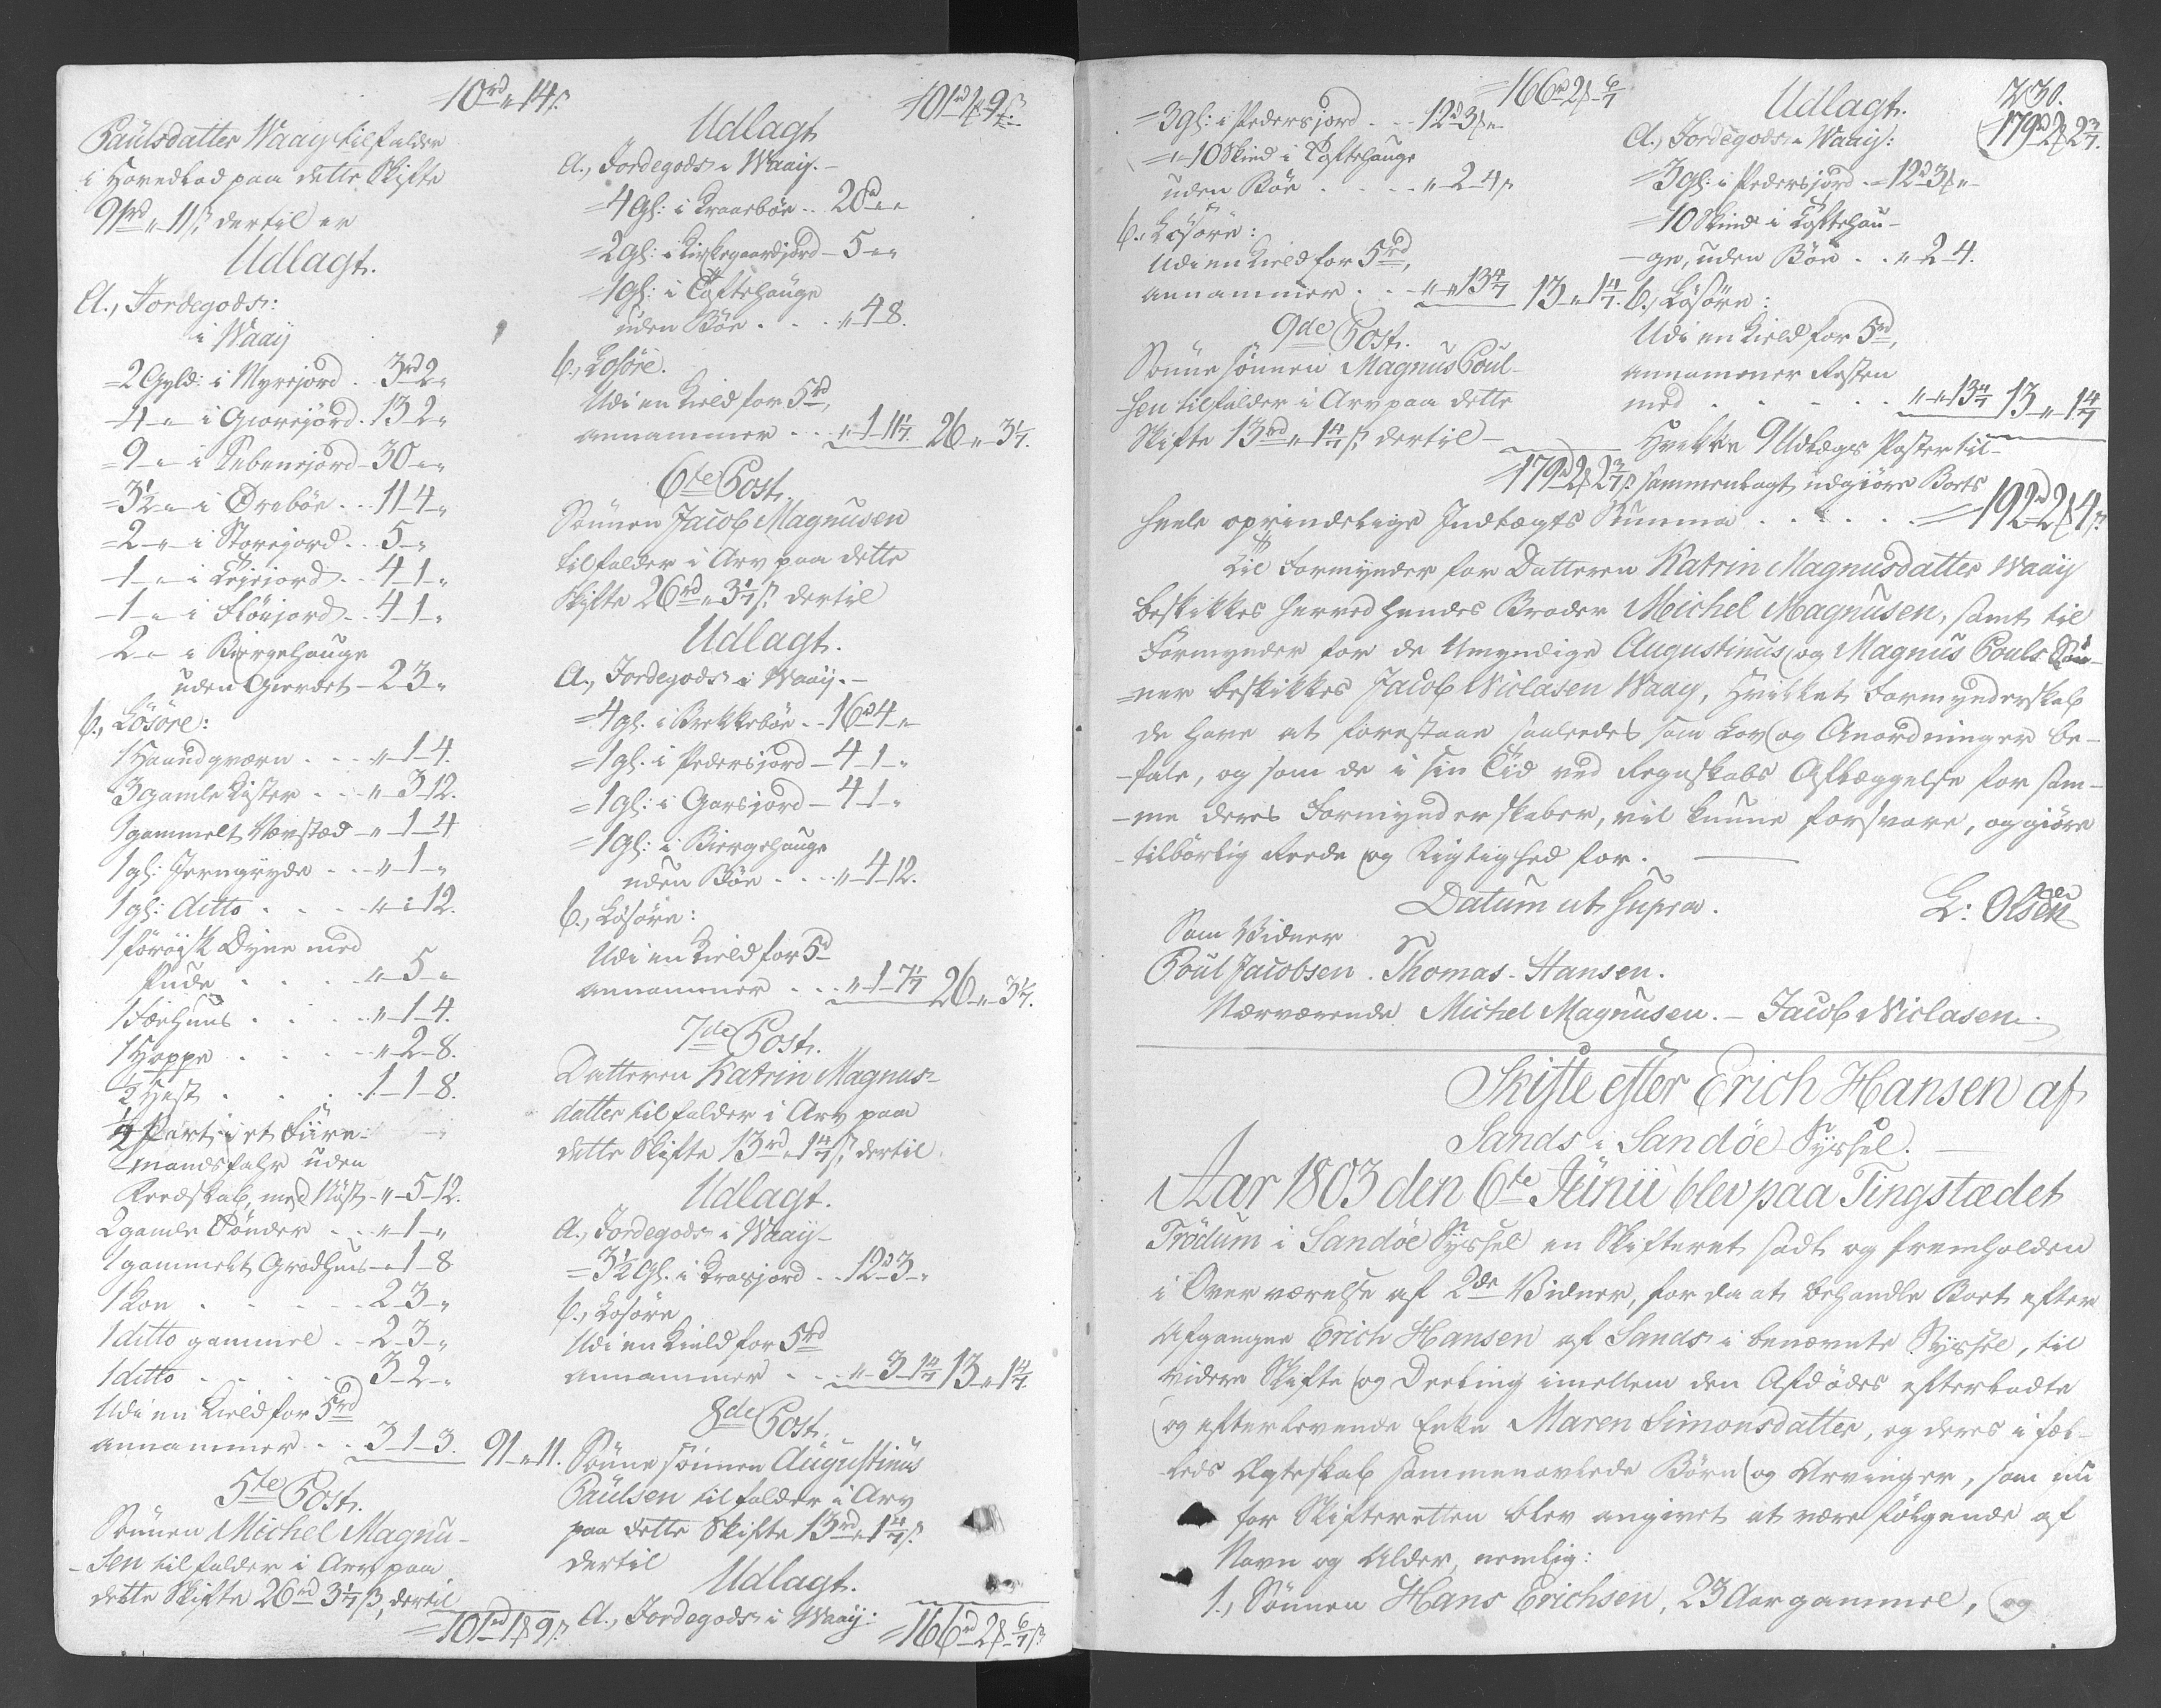 10rd " 14ß.
Paulsdatter Waaÿ tilfalder
i Hovedlod paa dette Skifte
91rd " 11ß, dertil er
Udlagt.
A., Jordegods:
i Waaÿ
=2 Gyld: i Myrejord . . 3rd 2 "
-4 - " - i Giorejord . 13 - 2 "
=9 - " - i Kebensjord - 30 - " - "
=3½ - " - i Ørebøe . . . 11 - 4 - "
=2 - " - i Storejord . . 5 - "
-1 - " - i Lejejord . . 4 - 1 - "
-1 - " - i Fløujord . . 4 - 1 - "
2 - " - i Biergehauge
uden Gierdet - 2 3 - "
b., Løsøre:
1 Haandqværn . . . " - 1 - 4.
3 gamle Kister . . . " - 3 12.
1 gammelt Vævstæd - " - 1 - 4
1 gl: Jerngryde . . . " - 1 - "
1 gl: ditto . . . " - " - 12.
1 førøisk Dyne med
Pude . . . . " - 5 - "
1 Føehuus . . . . " - 1 - 4.
1 Hoppe . . . . " - 2 - 8.
½ Hest . . . . 1 - 1 - 8.
¼ Part i et Fiire-
mandsfahr uden
Reedskab, med Nøst - " - 5 - 12.
2 gamle Tønder . . . " - 1 - "
1 gammelt Grødhuus - " - 1 - 8
1 Koe . . . . . 2 - 3 - "
1 ditto gammel . . 2 - 3 - "
1 ditto . . . . . 3 - 2 - "
Udi en Kield for 5rd
annammer . . 3 - 1 - 3. 91 - " - 11.
5te Post.
Sønnen Michel Magnu-
-sen tilfalder i Arv paa
dette Skifte 26rd 3 1/7 ß, dertil
=101rd 1 f 9 ß.
101rd 1 f 9 ß
Udlagt
A., Jordegods i Waaÿ.-
=4 gl: i Kraasbøe . . 20rd " "
=2 gl: i Kirkegaardsjord - 5 - " "
-1 gl: i Toftehauge
uden Bøe . . . " - 4 8.
b., Løsøre.
Udi en Kield for 5rd,
annammer . . . " - 1 - 11 1/7 26 - " - 3 1/7.
6te Post.
Sønnen Jacob Magnusen
tilfalder i Arv paa dette
Skifte 26rd " 3 1/7 ß, dertil
Udlagt.
A., Jordegods i Waaÿ.-
=4 gl. i Brekkebøe . . 16rd 4 - "
=1 gl. i Pedersjord - 4 - 1 - "
=1 gl: i Garsjord - 4 1 - "
=1 gl: i Biergehauge
uden Bøe . . . . " - 4 - 12.
b., Løsøre:
Udi en Kield for 5rd
annammer . . . " - 1 - 7 1/7 26 - " - 3 1/7.
7de Post.
Datteren Katrin Magnus-
datter tilfalder i Arv paa
dette Skifte 13rd " 1 4/7 ß, dertil
Udlagt.
A., Jordegods i Waaÿ-
=3½ gl. i Krosjord . . 12rd 3 - "
b., Løsøre
Udi en Kield for 5rd
annammer . . . " - 3 - 1 4/7 13 " 1 4/7.
8de Post.
Sønne sønnen Augustinus
Paulsen tilfalder i Arv
paa dette Skifte 13rd " 1 4/7 ß.
dertil
Udlagt.
A., Jordegods i Waaÿ:
=166rd 2 f 6/7 ß
=166rd 2 f 6/7
=3 gl: i Pedersjord . . . 12rd 3 f "
= " - 10 Skind i Toftehauge
uden Bøe . . . . " - 2 - 4 ß
b., Løsøre:
Udi en Kield for 5rd,
annammer . . . " " 13 4/7 13 " 1 4/7.
9de Post.
Sønne sønnen Magnus Poul-
sen tilfalder i Arv paa dette
Skifte 13rd " 1 4/7 ß, dertil -
=179rd 2 f 2 3/7 ß.
230.
179rd 2 f 2 3/7.
Udlagt.
A., Jordegods i Waaÿ:
=3 gl: i Pedersjord . = 12rd 3 f "
=10 Skind i Toftehau-
-ge, uden Bøe . . " - 2 - 4.
b., Løsøre:
Udi en Kield for 5rd,
annammer Resten
med . . . . . " - " - 13 4/7 13 " 1 4/7
Hvilke 9 Udlægs Poster til-
sammenlagt udgiøre Boets
heele oprindelige Indtægts Summa . . . . . =192rd 2 f 4 ß.
Til Formynder for Datteren Katrin Magnusdatter Waaÿ
beskikkes herved hendes Broder Michel Magnusen, samt til
Formynder for de Umyndige Augustinus og Magnus Pouls Søn-
-ner beskikkes Jacob Niclasen Waaÿ, Hvilket Formynderskab
de have at forestaae saaledes som Lov og Anordninger be-
-fale, og som de i sin Tid ved Regnskabs Aflæggelse for sam-
-me deres Formynderskaber, vil kunne forsvare, og giøre
-tilbørlig Reede og Rigtighed for.
Datum ut supra.
L: Olsen
Som Vidner
Poul Jacobsen. Thomas Hansen.
Nærværende Michel Magnusen. - Jacob Niclasen.
Skifte efter Erich Hansen af
Sands i Sandøe Syssel.
Aar 1803 den 6te Junii blev paa Tingstædet
Trödum i Sandøe Syssel en Skifteret sadt og fremholden
i Overværelse af 2de Vidner, for da at behandle Boet efter
Afgangne Erich Hansen af Sands i benævnte Syssel, til
videre Skifte og Deeling imellem den Afdødes efterladte
og efterlevende Enke Maren Simonsdatter, og deres i fæl-
-leds Ægteskab sammenavlede Børn og Arvinger, som nu
for Skifteretten blev angivet at være følgende af
Navn og Alder, nemlig:
1., Sønnen Hans Erichsen, 23 Aar gammel, og